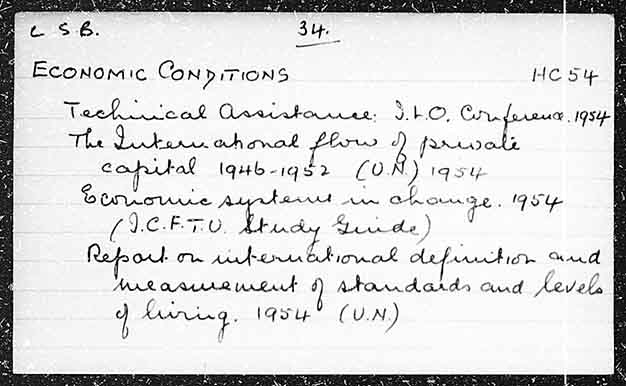 L S B. 34.
ECONOMIC CONDITIONS HC 54
Technical Assistance: I.L.O. Conference. 1954
The International flow of private
capital 1946-1952 (U.N.) 1954
Economic systems in change. 1954
(I.C.F.T.U. Study Guide)
Report on international definition and
measurement of standards and levels
of living. 1954 (U.N.)